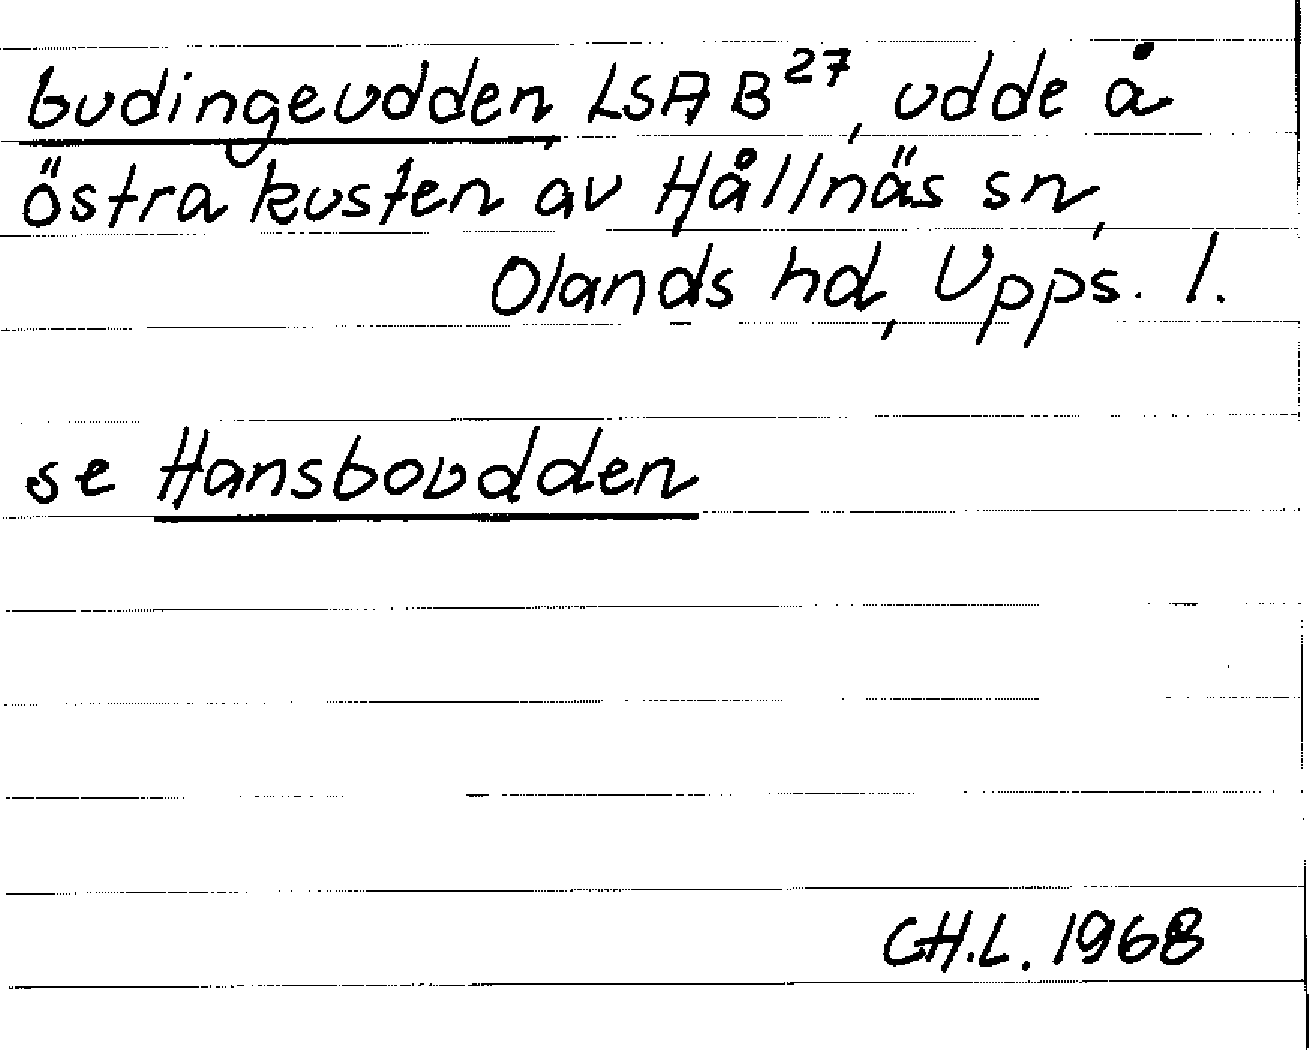 budingeudden, LSA B²⁷, udde å
östra kusten av Hållnäs sn,
Olands hd, Upps. l.
se Hansboudden
CH.L. 1968